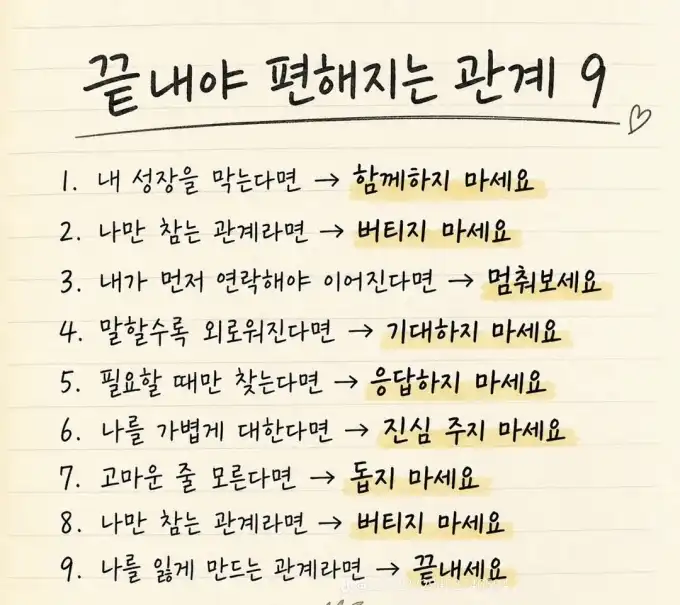 끝내야 편해지는 관계 9
1. 내 성장을 막는다면 → 함께하지 마세요
2. 나만 참는 관계라면 → 버티지 마세요
3. 내가 먼저 연락해야 이어진다면 → 멈춰보세요
4. 말할수록 외로워진다면 → 기대하지 마세요
5. 필요할 때만 찾는다면 → 응답하지 마세요
6. 나를 가볍게 대한다면 → 진심 주지 마세요
7. 고마운 줄 모른다면 → 돕지 마세요
8. 나만 참는 관계라면 → 버티지 마세요
9. 나를 잃게 만드는 관계라면 → 끝내세요